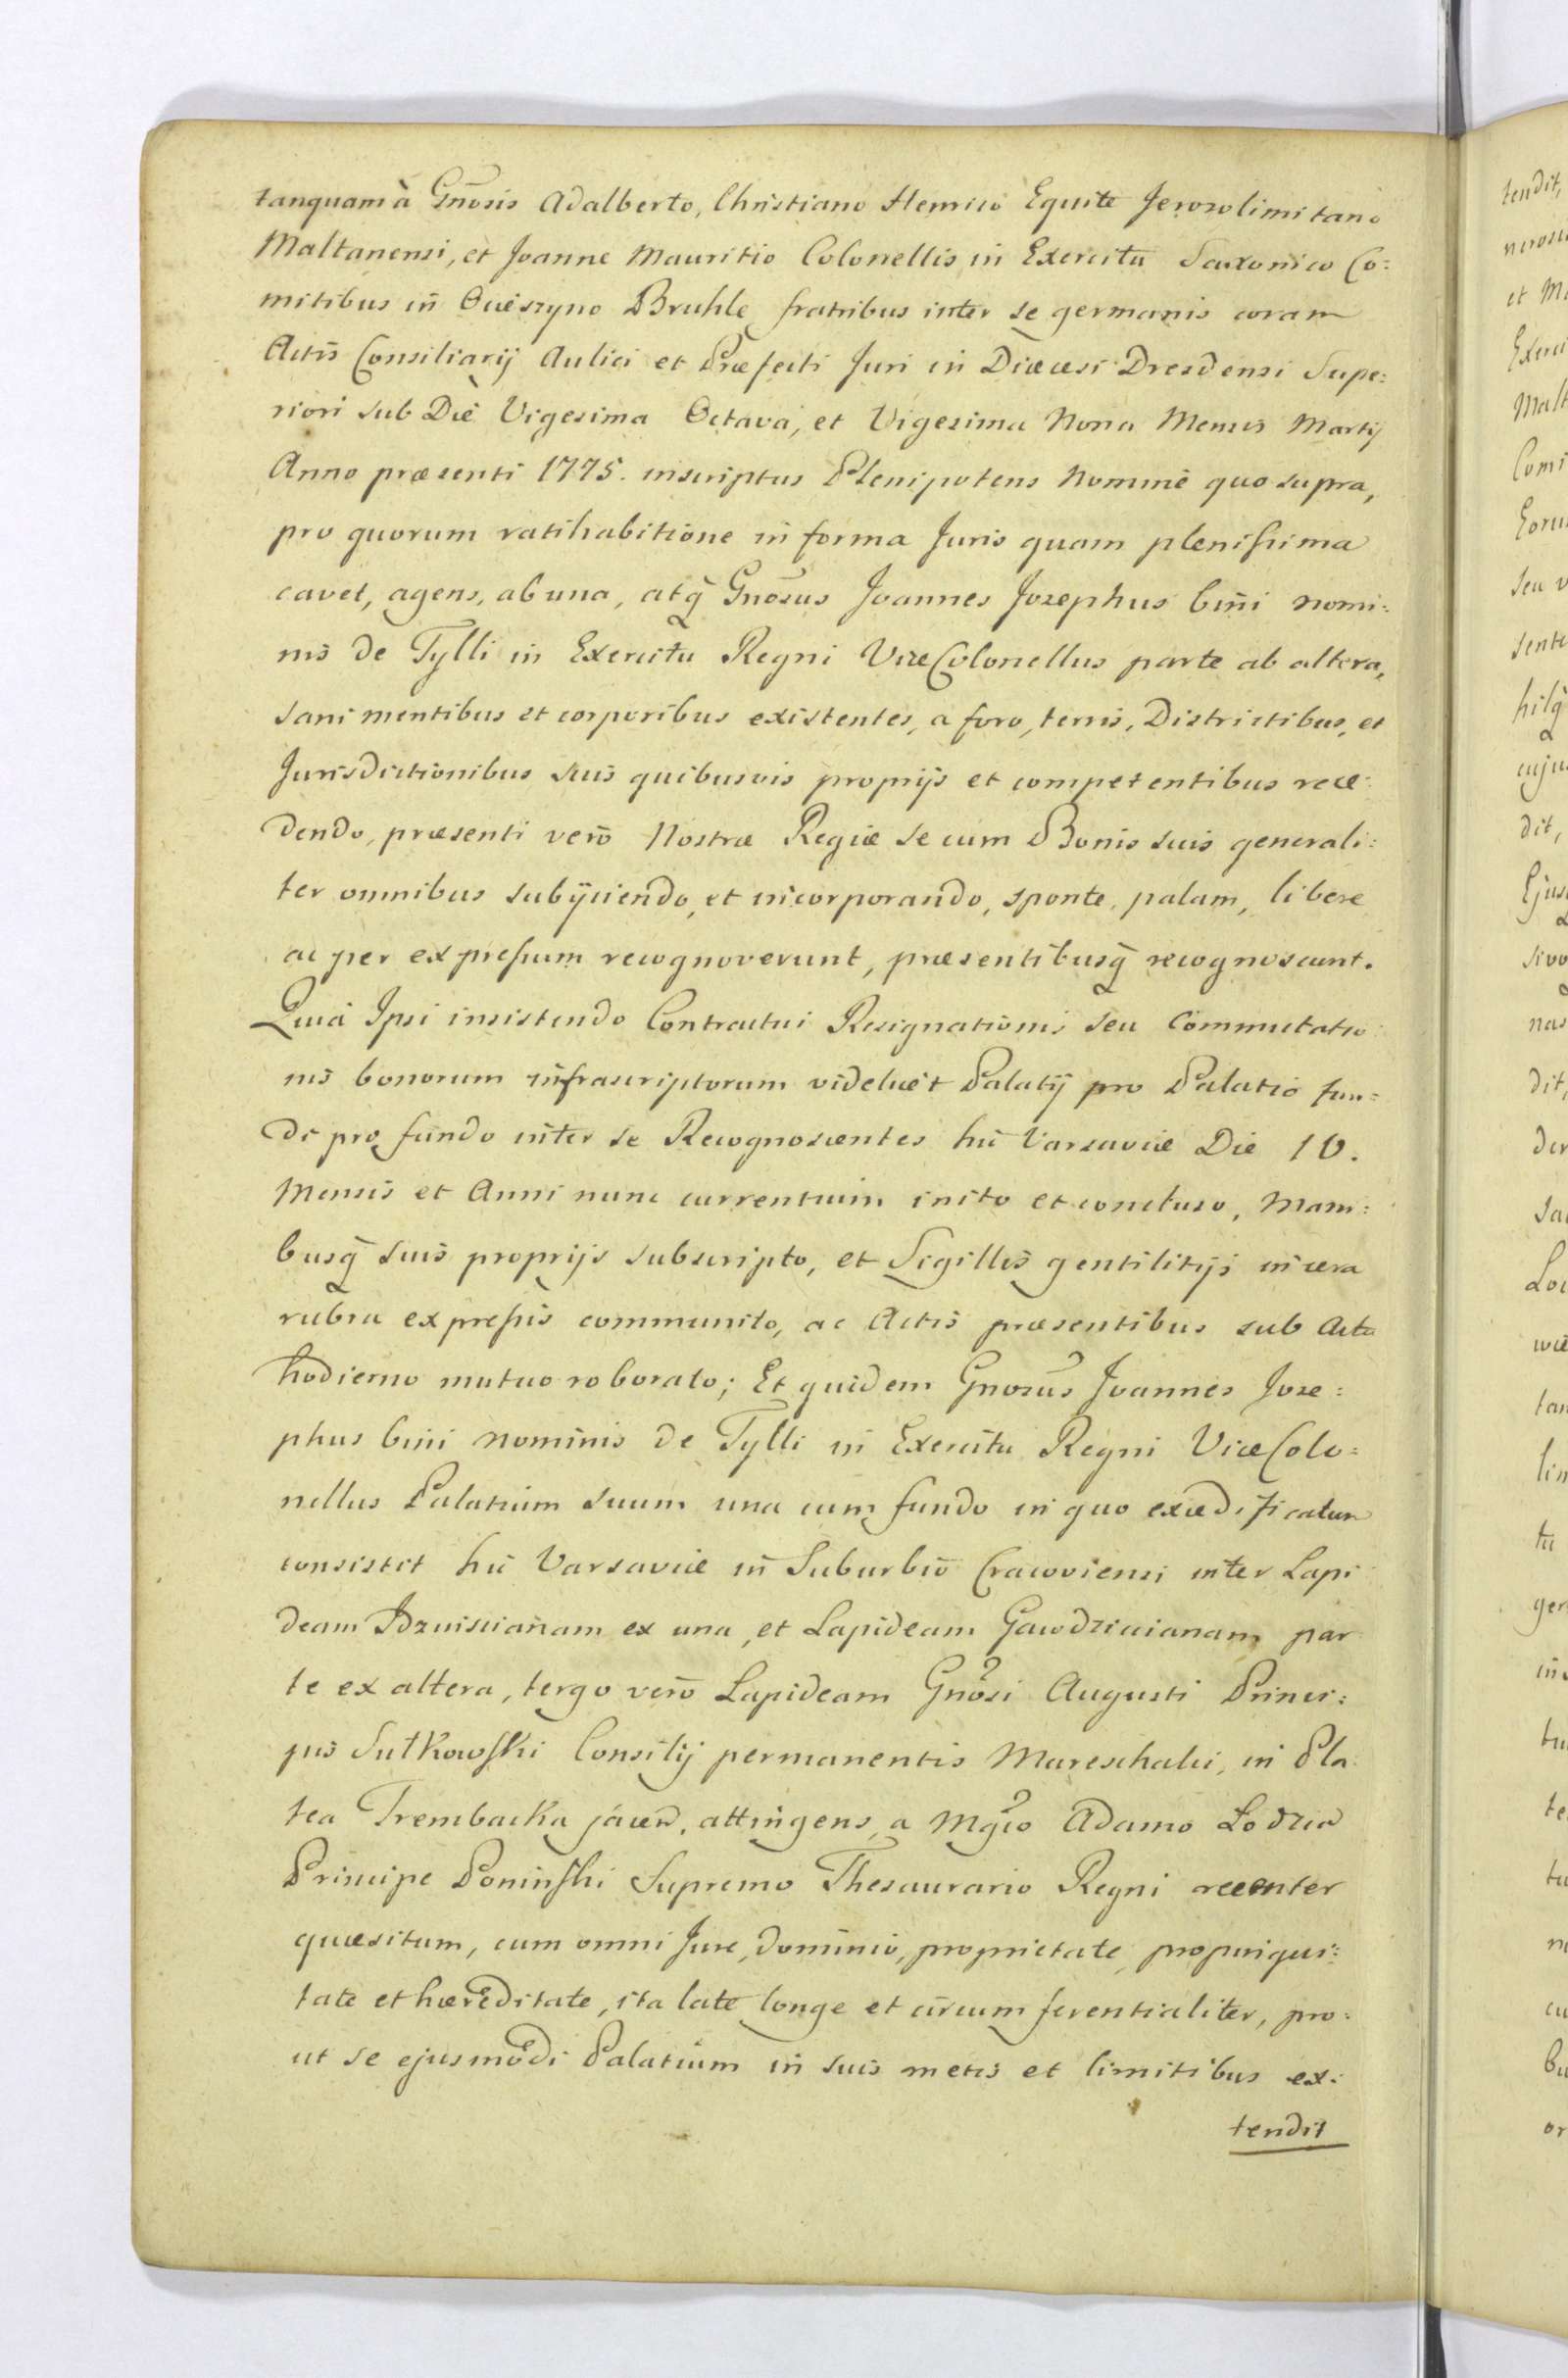 tanquam à Gnōsis Adalberto, Christiano Henrico Equite Jerozolimitano
Maltanensi, et Joanne Mauritio Colonellis in Exercitu Saxonico Co:
mitibus in Ocieszyno Bruhle fratribus inter se germanis coram
Actis Consiliarij Aulici et Præfecti Juri in Diæcesi Dresdensi Supe:
riori sub Die Vigesima Octava, et Vigesima Nona Mensis Martij
Anno præsenti 1775. inscriptus Plenipotens Nomine quo supra,
pro quorum ratihabitione in forma Juris quam plenissima
cavet, agens, ab una, atq̃ Gnōsus Joannes Josephus bini nomi:
nis de Tylli in Exercitu Regni ViceColonellus parte ab altera,
sani mentibus et corporibus existentes, a foro, terris, Districtibus, et
Jurisdictionibus suis quibusvis proprijs et competentibus rece:
dendo, præsenti verò Nostræ Regiæ se cum Bonis suis generali:
ter omnibus subijciendo, et incorporando, sponte, palam, libere
ac per expressum recognoverunt, præsentibusq̃ recognoscunt.
Quià Ipsi insistendo Contractui Resignationis seu Commutatio
nis bonorum infrascriptorum videlicèt Palatij pro Palatio fun:
di pro fundo inter se Recognoscentes hic Varsaviæ Die 10.
Mensis et Anni nunc currentium inito et concluso, Mani:
busq̃ suis proprijs subscripto, et Sigillis gentilitijs in cera
rubra expressis communito, ac Actis præsentibus sub Actu
hodierno mutuo roborato; Et quidem Gnosus Joannes Jose:
phus bini nominis de Tylli in Exercitu Regni ViceColo:
nellus Palatium suum una cum fundo in quo exædificatum
consistit hic Varsaviæ in Suburbio Cracoviensi inter Lapi
deam Dzuiscianam ex una, et Lapideam Gawdzicianam par
te ex altera, tergo verò Lapideam Gnōsi Augusti Princi:
pis Sułkowski Consilij permanentis Mareschalci, in Pla
tea Trembacka jacen. attingens, a Mgco Adamo Lodzia
Principe Poninski Supremo Thesaurario Regni recenter
quæsitum, cum omni Jure, dominio, proprietate, propinqui:
tate et hæreditate, ita late longe et circumferentialiter, pro:
ut se ejusmodi Palatium in suis metis et limitibus ex:
tendit
tendit,
et M
dit,
dit,